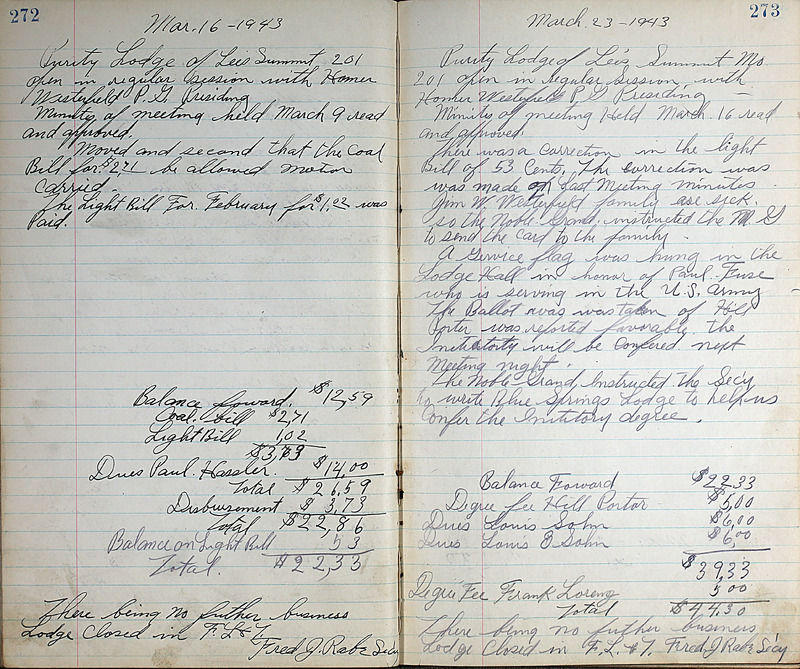 272
Mar. 16 - 1943
Purity Lodge of Lees Summit, 201
open in regular session with Homer
Westerfield P.G Presiding
Minits of meeting held March 9 read
and approved.
Moved and second that the Coal
Bill for $2,71 be allowed motion
carried.
The Light Bill For. February for $1,02 was
Paid.
Balance forward. $12,59
Coal. bill $2,71
Light Bill 1,02
$3,73
Dues Paul. Hassler. $14,00
Total $26,59
Disbursement $3,73
Total $22,86
Balance on Light Bill 53
Total. $22,33
There being no futher business
Lodge Closed in F. L & T.
Fred J. Rabe Secy
273
March. 23 - 1943
Purity Lodge of Lee's, Summit Mo
201 open in regular session, with
Homer Westerfield P G Presiding
Minits of meeting Held March. 16 read
and approved.
There was a correction in the light
Bill of 53 Cents, The correction was
was made on last Meeting minutes.
Jim W. Westerfield family are sick.
so the Noble Grand. instructed the M. G
to send the Card to the family.
A Service flag was hung in the
Lodge Hall in honor of Paul. Fuse
who is serving in the U.S. Army
The Ballot was was taken of Hill
Porter was reported favorably the
Inititutory will be Confered next
Meeting night.
The Noble Grand, Instructed the Secy
to write Blue Springs Lodge to help us
Confer the Inititory degree.
Balance Foward $22,33
Degree fee Hill Porter $5,00
Dues Louis Sohm $6,00
Dues Louis E Sohm $6,00
$39,33
Degree Fee Frank Loreng 5 00
Total $44,30
There being no futher business
Lodge Closed in F, L, & T, Fred J Rabe Secy